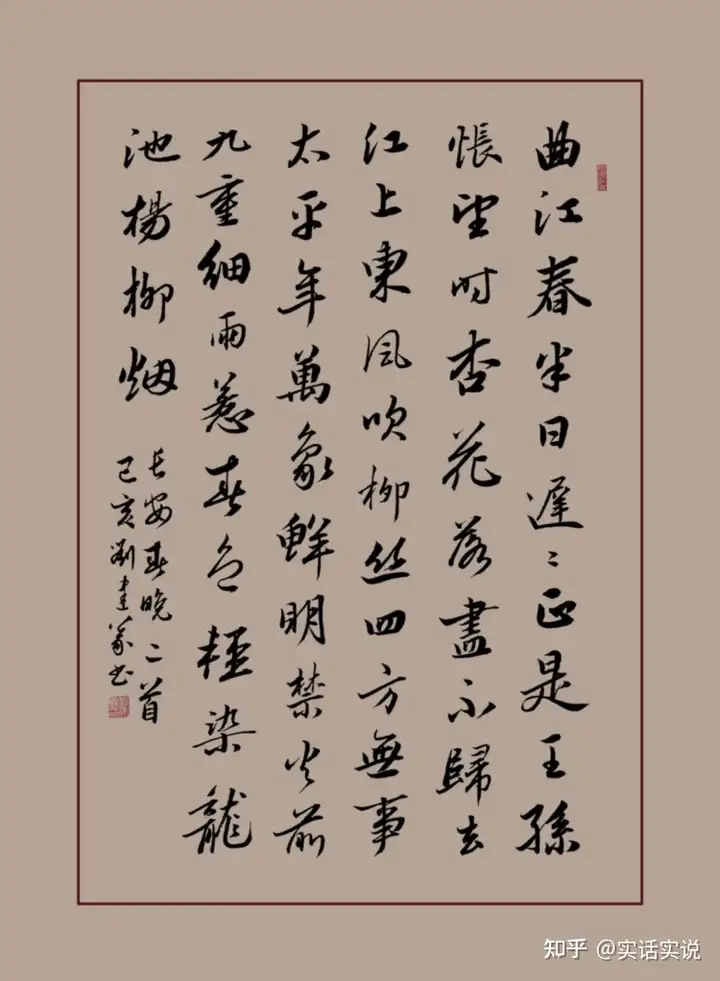 曲江春半日遲〻正是王孫
悵望時杏花落盡不歸去
江上東風吹柳丝四方無事
太平年萬象鮮明禁火前
九重細雨惹春色輕染龍
池楊柳烟
長安春晚二首
己亥劉建书
知乎 @实话实说